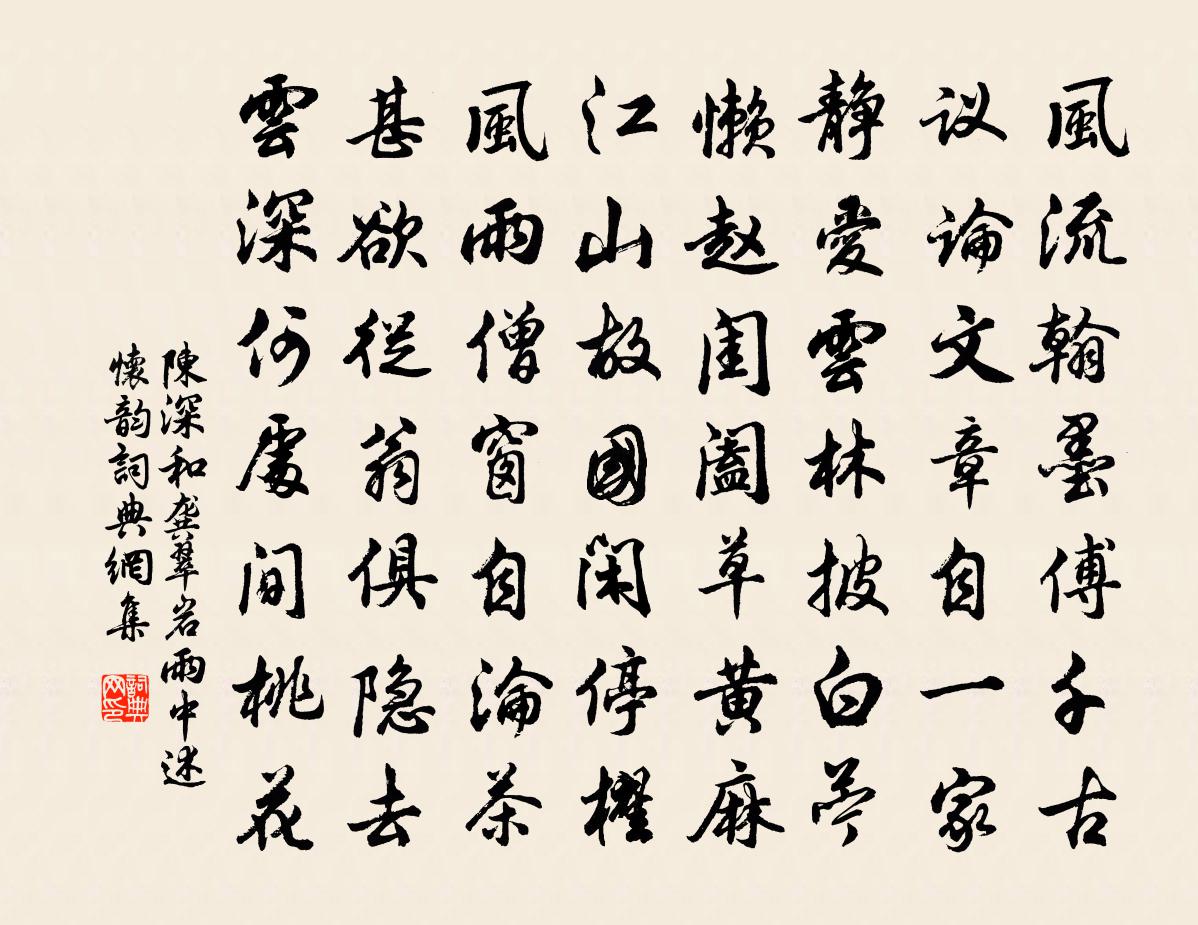 風流翰墨傅千古
议論文章自一家
静愛雲林披白苎
懒赵闺阖草黃麻
江山故國闲停櫂
風雨僧窗自淪茶
甚欲從翁俱隐去
雲深何處间桃花
陳深和龚翠岩雨中述
懷韵詞典網集
詞典
网印